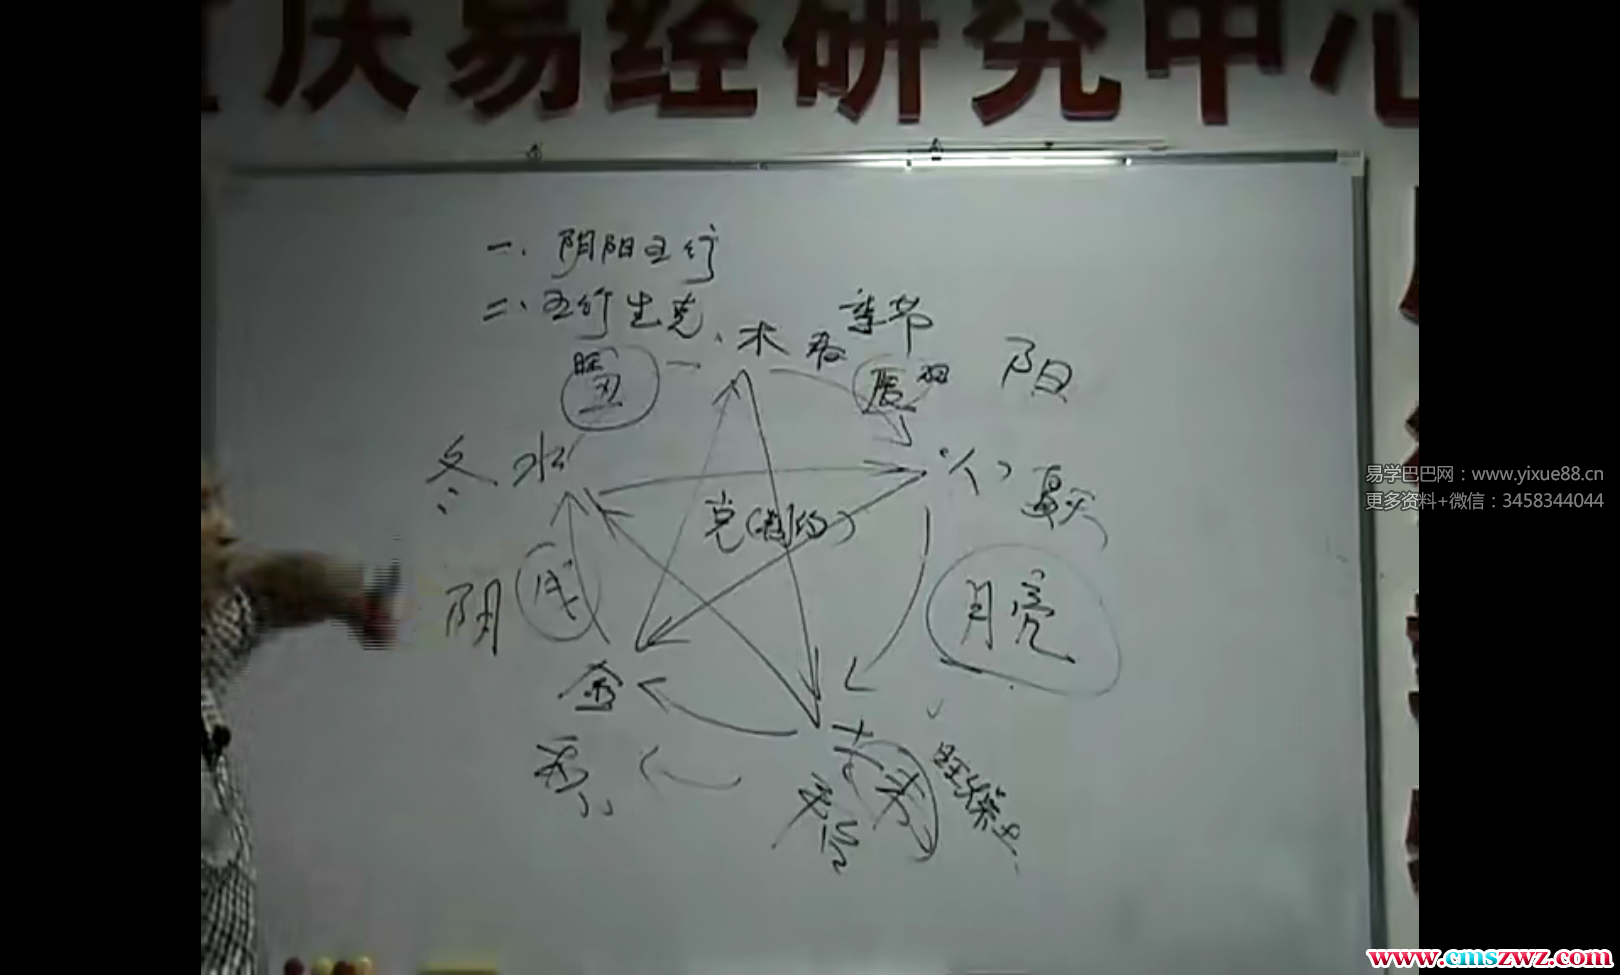 庆易经研究中心
一、阴阳五行
二、五行生克
季节
木 春
旺
丑
辰
阳
冬 水
火 夏天
克(制约)
阴
戌
月亮
金
秋
土
未
长夏
易学巴巴网：www.yixue88.cn
更多资料+微信：3458344044
www.cmszwz.com